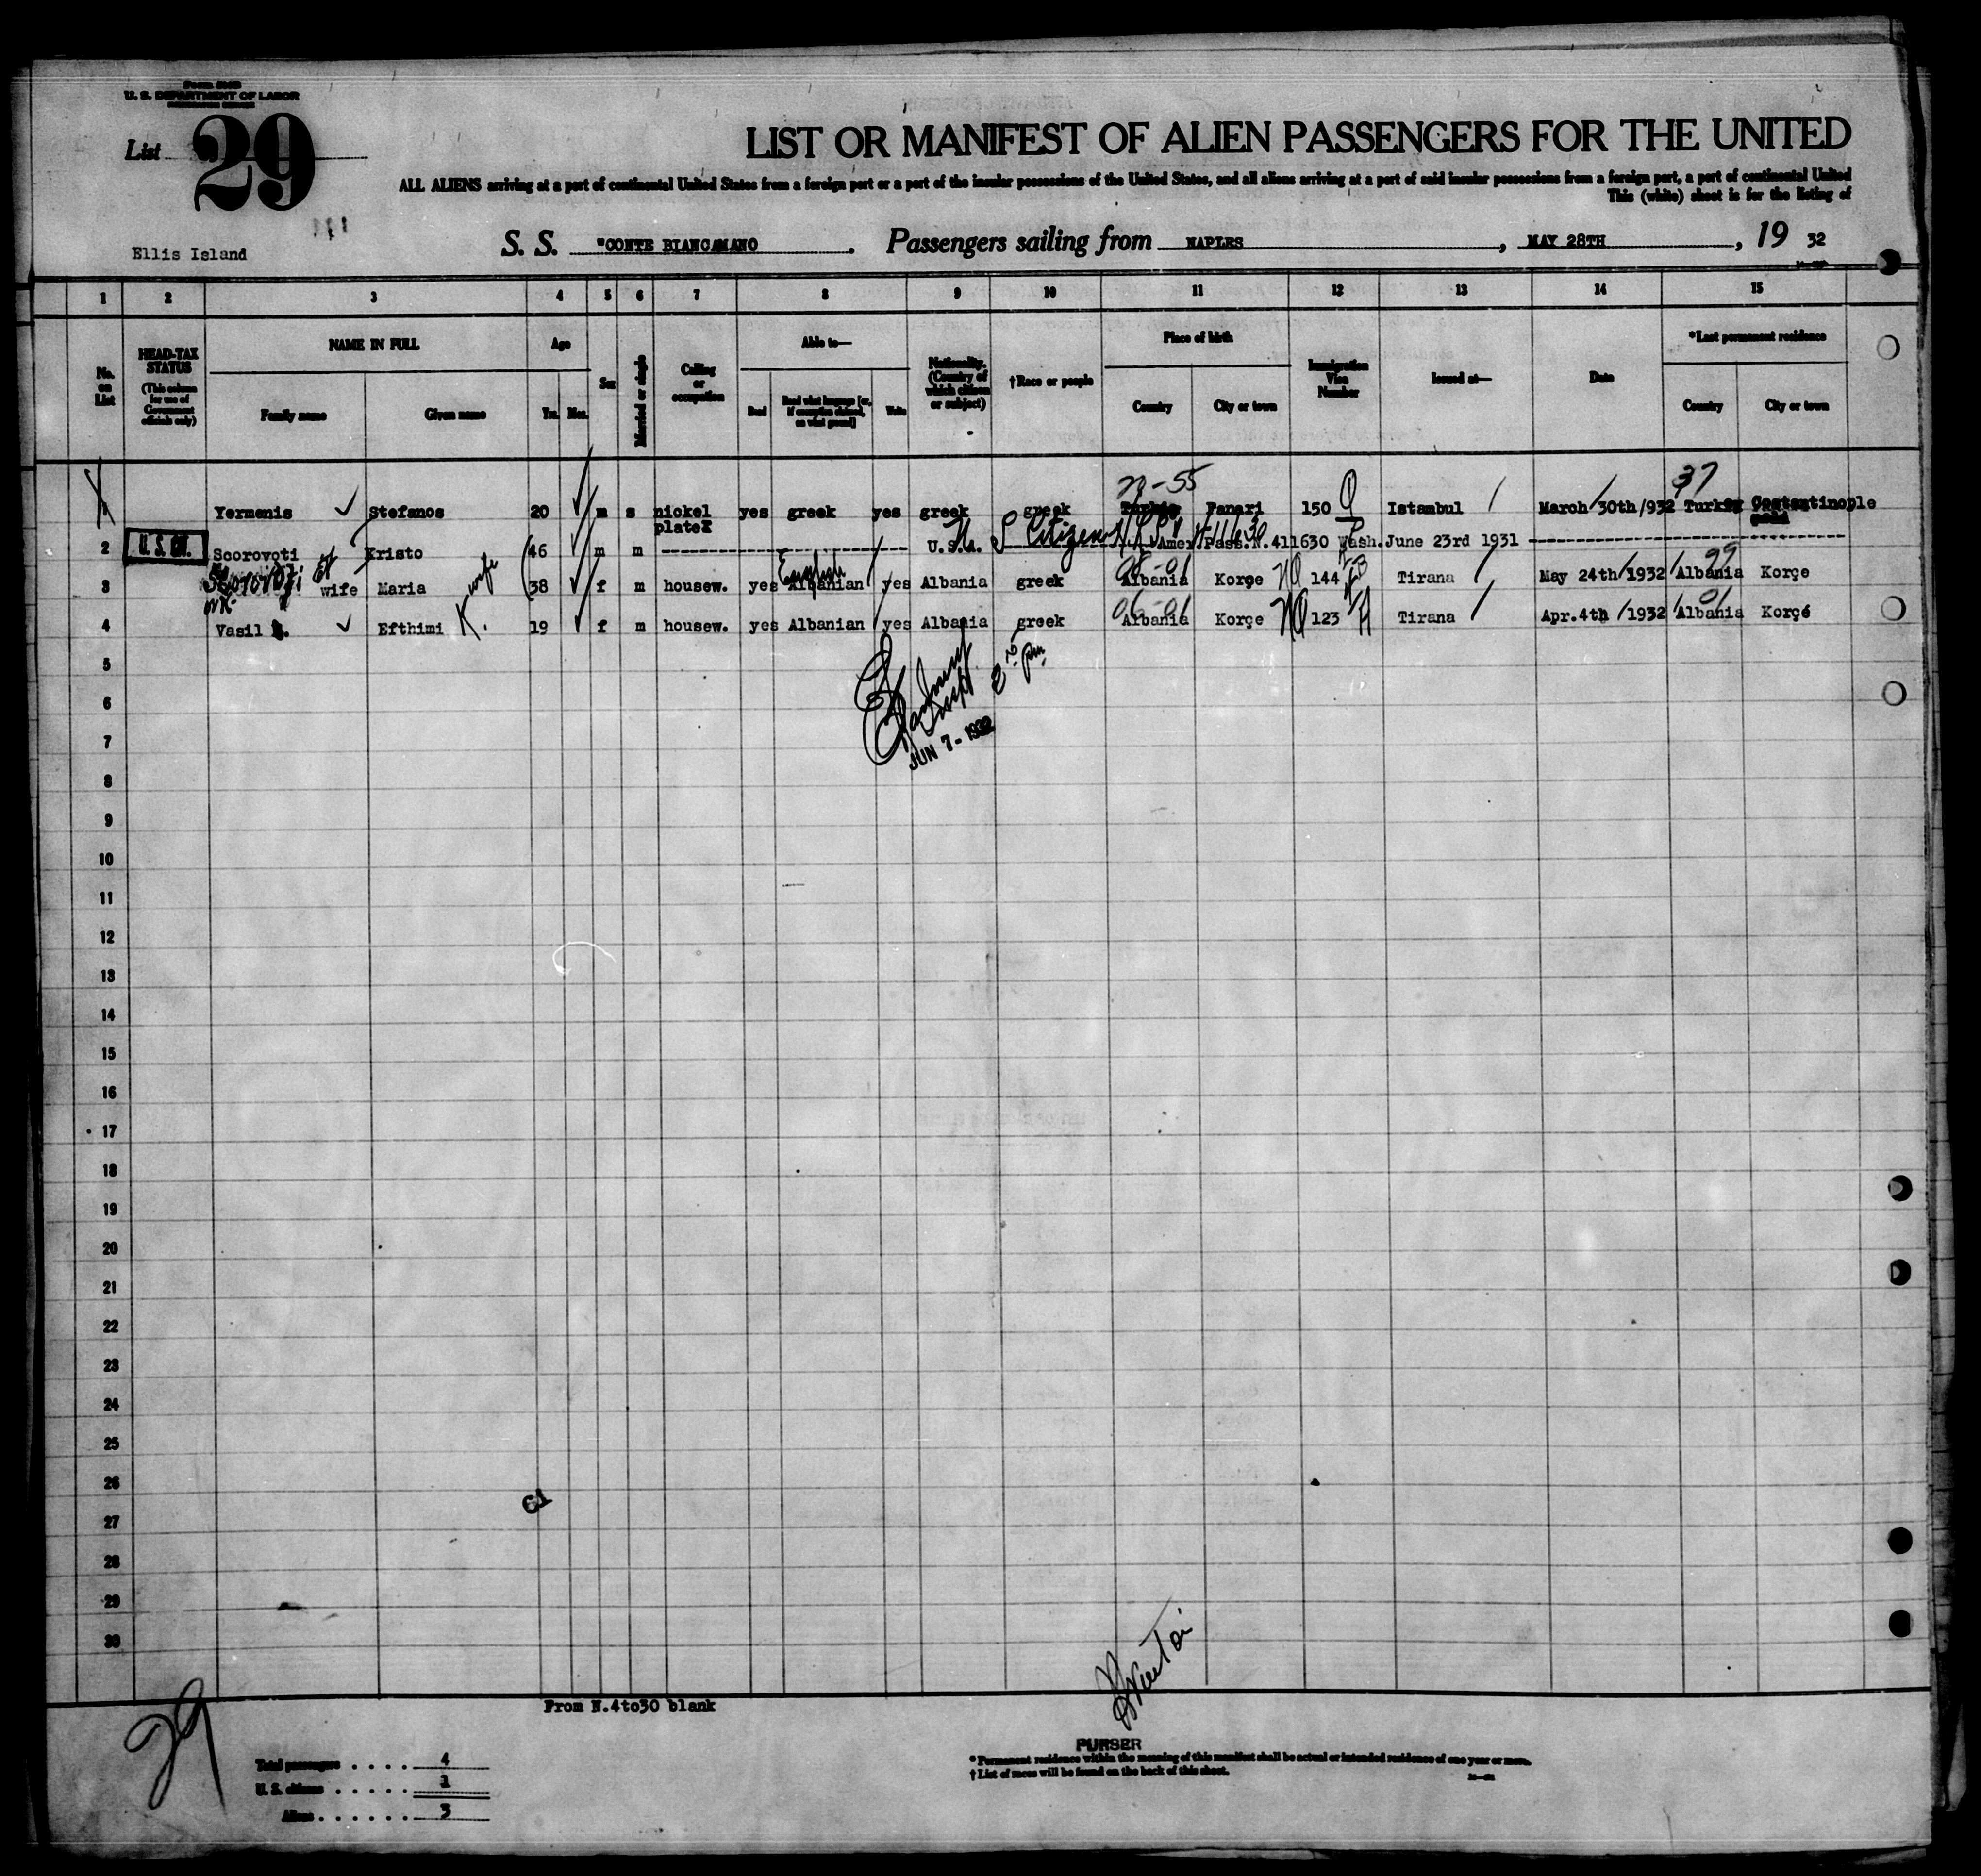 U. S. DEPARTMENT OF LABOR
List 29
LIST OR MANIFEST OF ALIEN PASSENGERS FOR THE UNITED
ALL ALIENS arriving at a port of continental United States from a foreign port or a port of the insular possessions of the United States, and all aliens arriving at a port of said insular possessions from a foreign port, a port of continental United
This (white) sheet is for the listing of
Ellis Island
S. S. "CONTE BIANCAMANO . Passengers sailing from NAPLES , MAY 28TH , 19 32
1 2 3 4 5 6 7 8 9 10 11 12 13 14 15
No. on List
HEAD-TAX STATUS (This column for use of Government officials only)
NAME IN FULL
Family name
Given name
Age
Yrs. Mos.
Sex
Married or single
Calling or occupation
Able to—
Read
Read what language [or, if exemption claimed, on what ground]
Write
Nationality. (Country of which citizen or subject)
†Race or people
Place of birth
Country
City or town
Immigration Visa Number
Issued at—
Date
*Last permanent residence
Country
City or town
Yermanis Stefanos 20 m s nickel plater yes greek yes greek greek Turkie Fanari 150 Istambul March 30th/932 Turkey Costantinople
2 U. S. CIT. Scorovoti Kristo 46 m m U.S.A. U S Citizen Amer.Pass.N.411630 Wash. June 23rd 1931
3 Scorovoti wife Maria K. wife 38 f m housew. yes English Albanian yes Albania greek Albania Korçe 144 Tirana May 24th/1932 Albania Korçe
4 Vasil Efthimi 19 f m housew. yes Albanian yes Albania greek Albania Korçe 123 Tirana Apr.4th/1932 Albania Korçé
JUN 7 - 1932
5
6
7
8
9
10
11
12
13
14
15
16
17
18
19
20
21
22
23
24
25
26
27
28
29
30
From N.4to30 blank
29
PURSER
Total passengers . . . . 4
U. S. citizens . . . . . 1
Aliens . . . . . . 3
* Permanent residence within the meaning of this manifest shall be actual or intended residence of one year or more.
† List of races will be found on the back of this sheet.